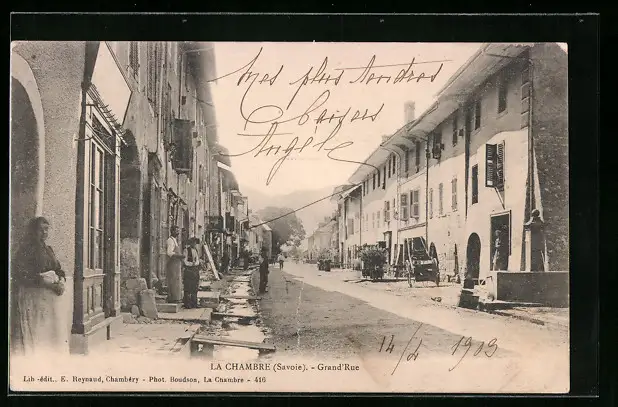 Mes plus Tendres
Baisers
Angèle
14/4 1903
LA CHAMBRE (Savoie). - Grand'Rue
Lib.-édit., E. Reynaud, Chambéry - Phot. Boudson, La Chambre - 416